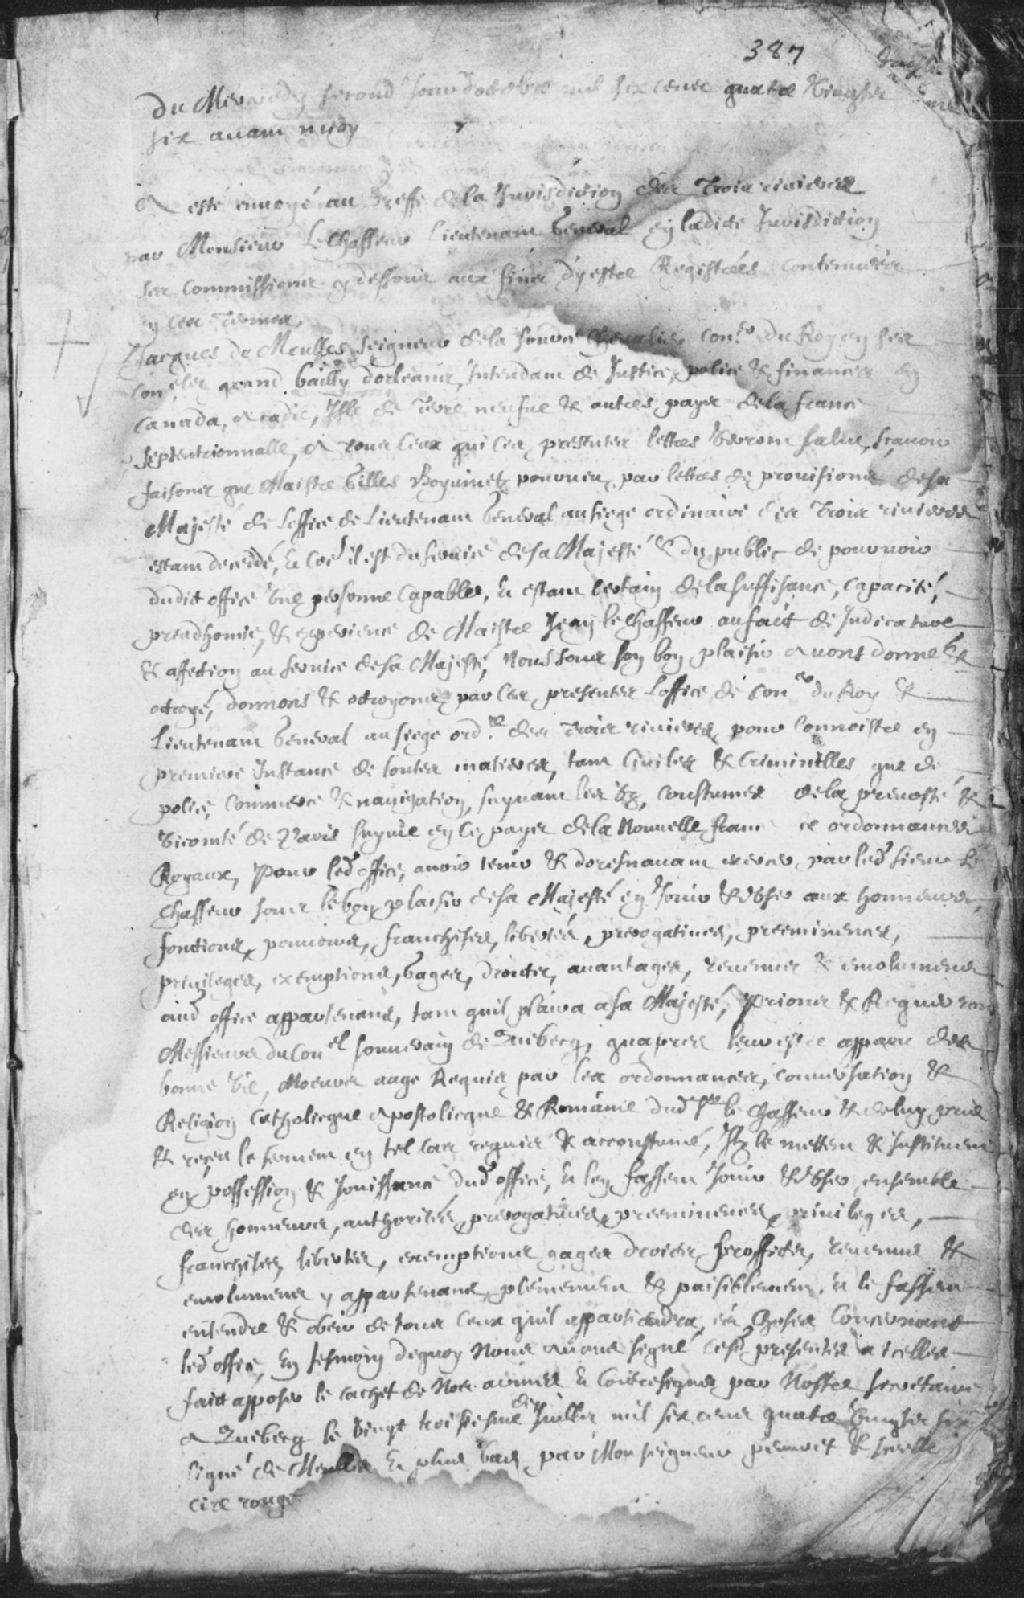 387
Du Mercredy second jour doctobre mil six cens quatre vingts
six avant midy
A esté envoyé au Greffe de la Jurisdiction des Trois rivieres
par Monsieur LeChasseur Lieutenant General en ladicte Jurisdiction
ses commissions cy dessous aux fins dy estre Registrées contenues
en ces termes
Jacques de Meulles Seigneur de la Source Chevalier, con.er du Roy en ses
con.elz grand bailly dorleans, Intendant de Justice, police & finances en
Canada, Acadie, Isle de Terre neufve & autres payx de la france
septentrionnalle, A tous ceux qui ces presentes lettres verront salut, scavoir
faisons que Maistre Gilles Boyvinet pourveu par lettres de provisions de sa
Majesté de Loffice de Lieutenant General au siege ordinaire des Trois rivieres
estant decedé, & co.e il est du service de sa Majesté & du public de pourvoir
dudict office une personne capable, & estant certain de la suffisance, capacité,
preudhomie, & experience de Maistre Jean le Chasseur au faict de Judicature
& affection au service de sa Majesté, Nous sous son bon plaisir avons donné &
octroyé, donnons & octroyons par ces presentes Loffice de con.er du Roy &
Lieutenant General au siege ord.re des Trois rivieres, pour connoistre en
premiere Instance de toutes matieres, tant Civiles & Criminelles que de
police, commerce & navigation, suyvant les us, coustumes de la prevosté &
Vicomté de Paris suyvie en ce payx de la Nouvelle france ordonnances
Royaux, Pour led office, avoir tenir & doresnavant exercer par led sieur le
Chasseur sous le bon plaisir de sa Majesté en Jouir & User aux honneurs,
fonctions, pouvoirs, franchises, libertés, prerogatives, preeminences,
privileges, exemptions, gages, droicts, avantages, revenus & emolumens
aud office appartenans, tant quil plaira a sa Majesté, Prions & Requerons
Messieurs du Con.el souverain de Quebecq, quapres leur estre apparu des
bonne vie, Moeurs aage Requis par les ordonnances, conversation &
Religion Catholicque apostolicque & Romaine dud s.r le Chasseur & de luy prins
& receu le serment en tel cas requis & accoustumé, Ilz le mettent & Instituent
en possession & Jouissance dud office, & len fassent Jouir & User ensemble
des honneurs, authorités, prerogatives, preeminences, privileges,
franchises, libertés, exemptions gages droicts proffits, revenus &
emolumens y appartenans, pleinement & paisiblement, & le fassent
entendre & obeir de tous ceux quil appartiendra, es choses Concernant
led office, En tesmoin dequoy Nous avons signé ces presentes a icelles
faict apposer le cachet de Nos armes & contresigner par Nostre secretaire
A Quebecq le vingt troisiesme de Juillet mil six cens quatre vingts six
signé de Meulles & plus bas, par Monseigneur & scellé
cire rouge